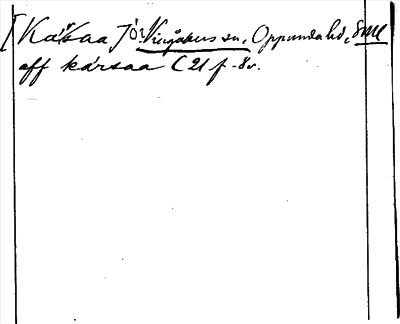 [Kärsaa Jör Vingåkers sn, Oppunda hd, Sml
aff kársaa (21 f. 8v.